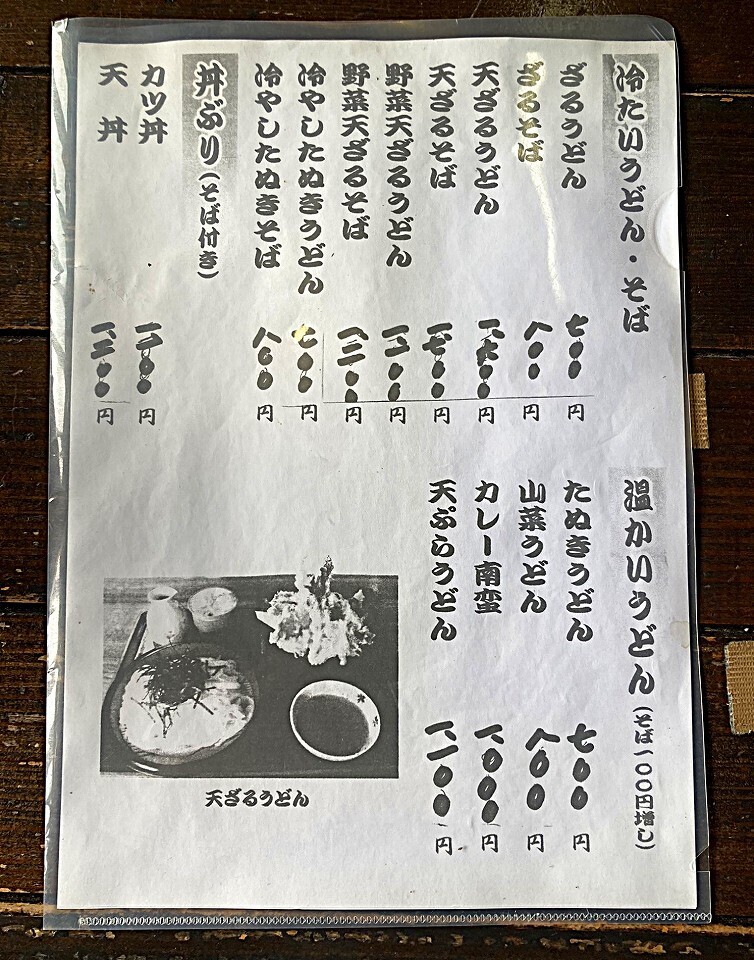 冷たいうどん・そば
ざるうどん 七〇〇円
ざるそば 八〇〇円
天ざるうどん 円
天ざるそば 一、七〇〇円
野菜天ざるうどん 円
野菜天ざるそば 円
冷やしたぬきうどん 七〇〇円
冷やしたぬきそば 八〇〇円
丼ぶり(そば付き)
カツ丼 円
天丼 円
温かいうどん(そば一〇〇円増し)
たぬきうどん 七〇〇円
山菜うどん 八〇〇円
カレー南蛮 一、〇〇〇円
天ぷらうどん 一、一〇〇円
天ざるうどん